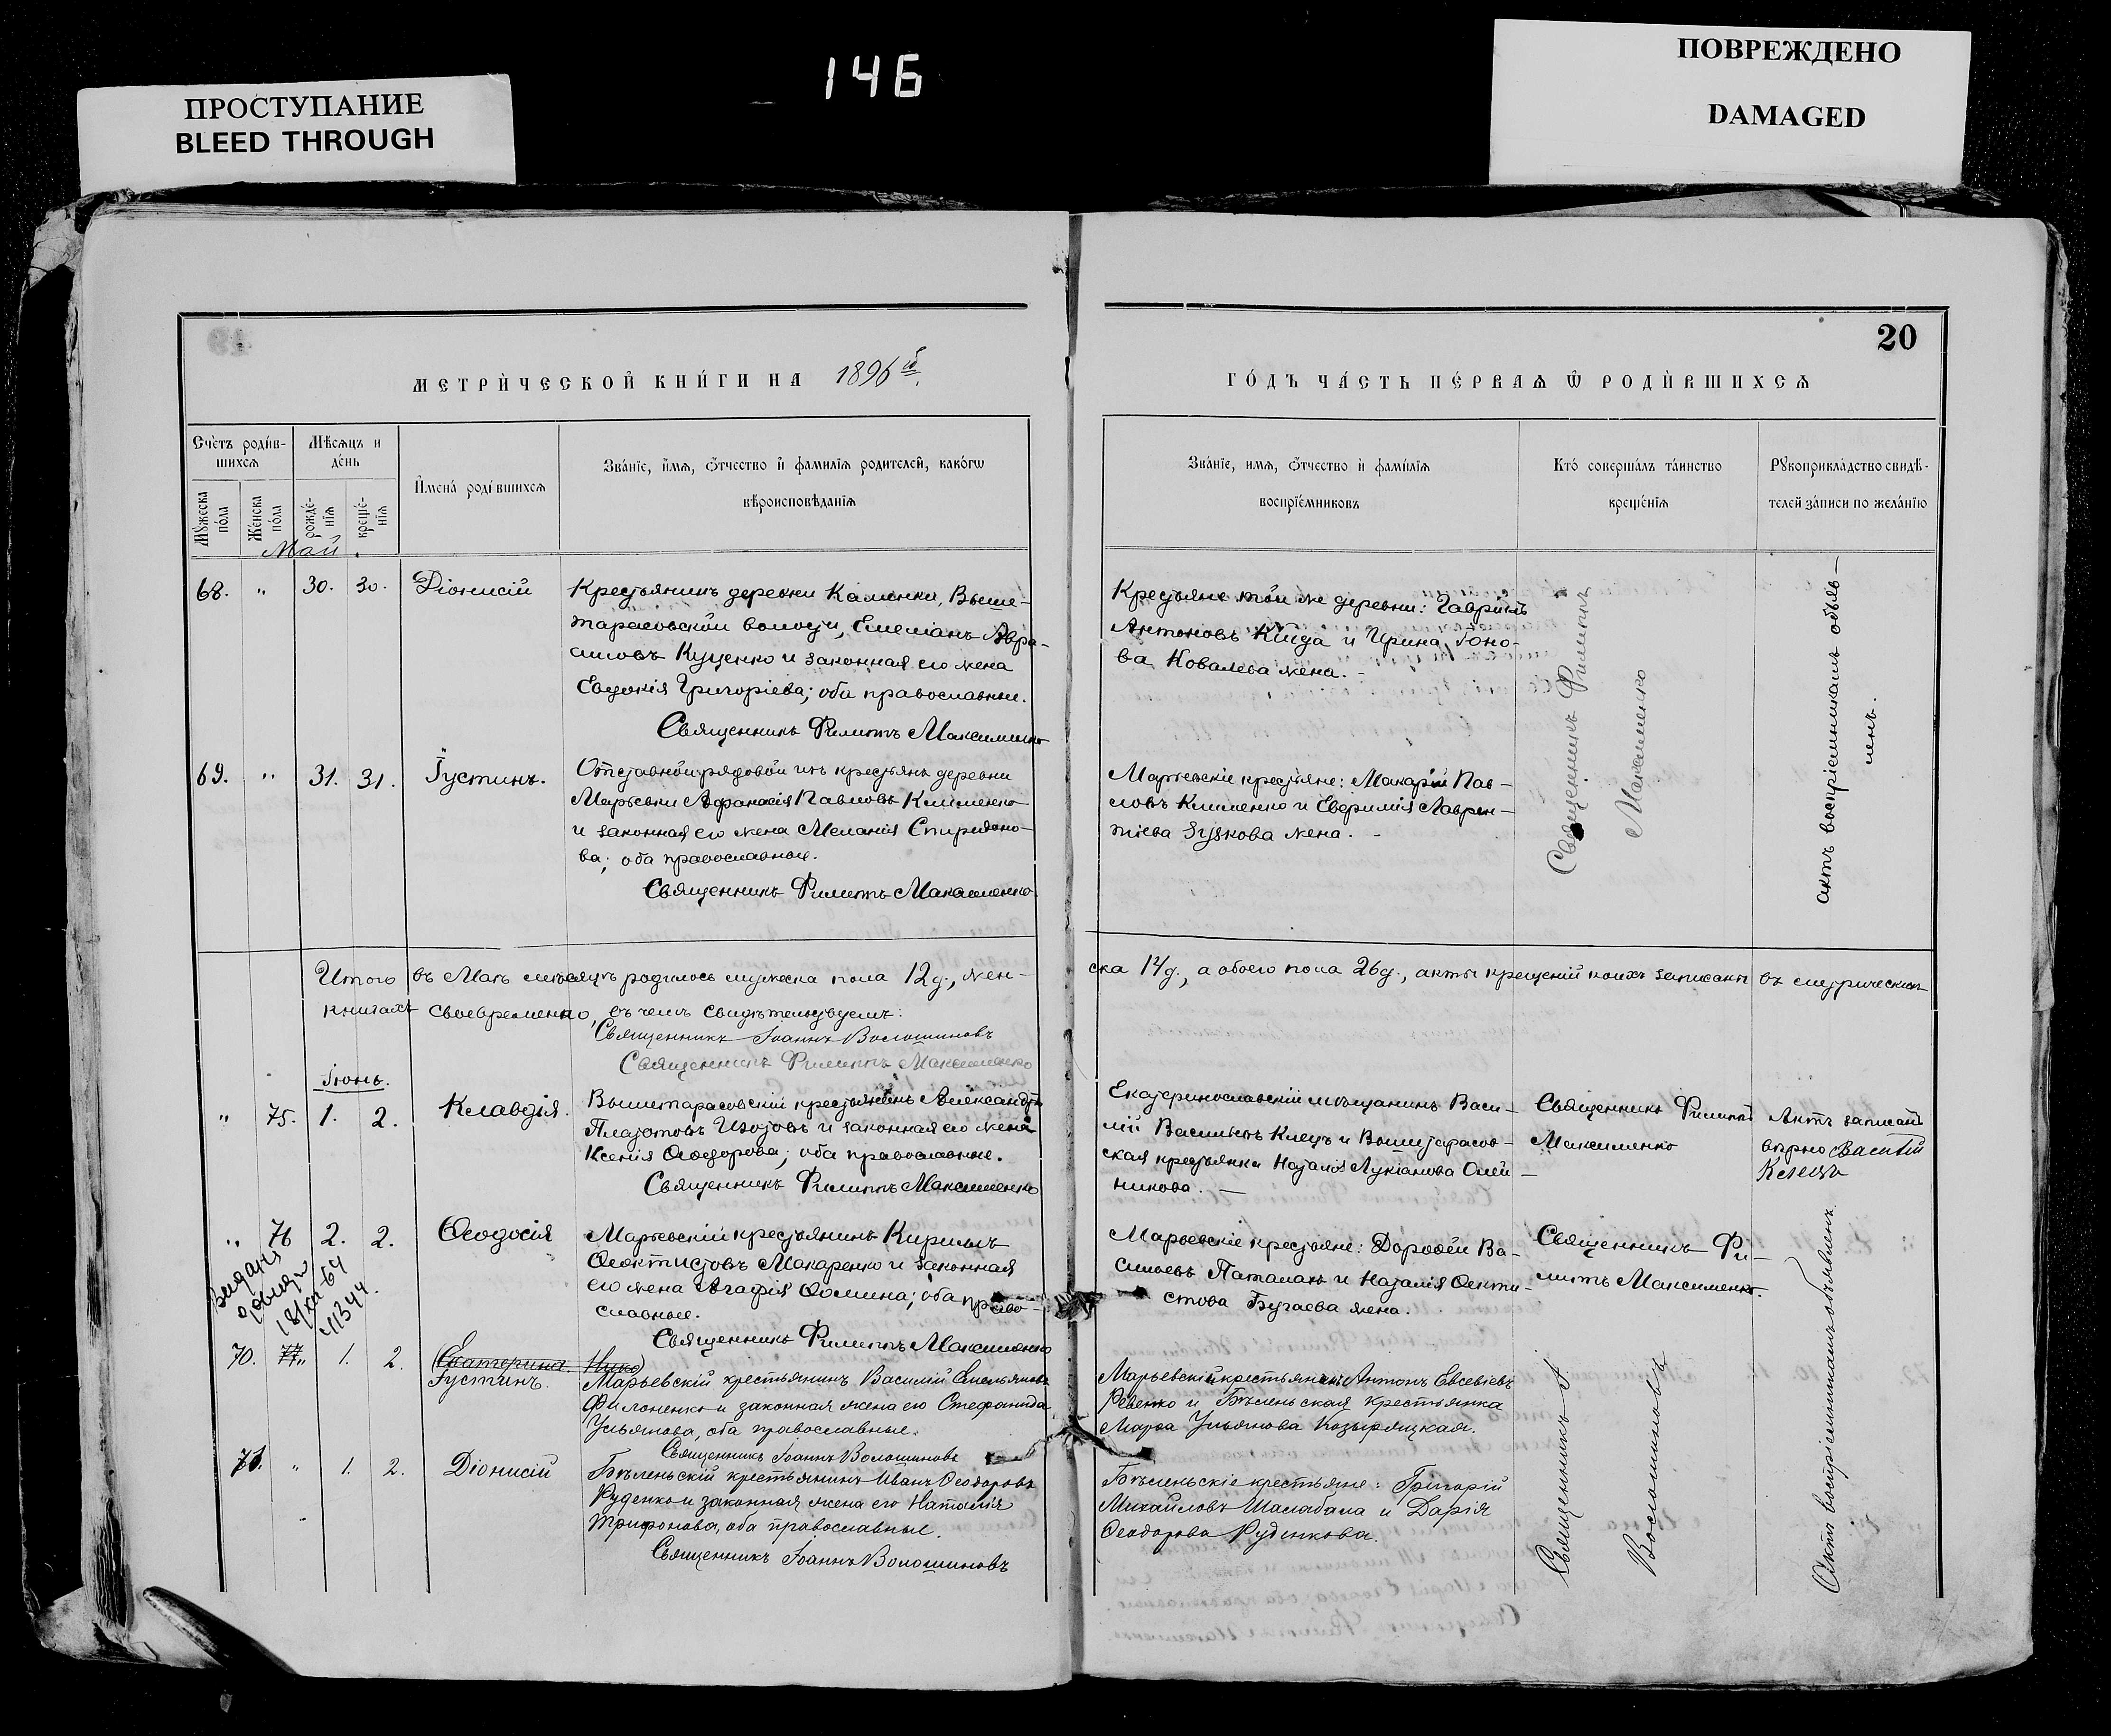 ПРОСТУПАНИЕ
BLEED THROUGH
146
ПОВРЕЖДЕНО
DAMAGED
20
МЕТРИ́ЧЕСКОЙ КНИ́ГИ НА 1896
ГО́ДЪ ЧА́СТЬ ПЕ́РВАѦ Ѡ РОДИ́ВШИХСѦ
Счетъ роди́в-
шихсѧ
Мꙋжеска
по́ла
Же́нска
по́ла
Мѣсѧцъ и
де́нь
рожде́-
нїѧ
креще́-
нїѧ
И҆мена́ роди́вшихсѧ
Зва́нїе, и҆́мѧ, ѻ҆́тчество и҆ фами́лїѧ родителей, како́гѡ
вѣроисповѣданїѧ
Зва́нїе, имѧ, ѻ҆́тчество и҆ фами́лїѧ
воспрїе́мниковъ
Кто́ соверша́лъ та́инство
креще́нїѧ
Рꙋкоприкла́дство свидѣ́-
телей за́писи по жела́нїю
Май.
68. " 30. 30. Діонисій
Крестьянинъ деревни Каменки, Выше-
тарасовской волости, Емеліанъ Авра-
амовъ Куценко и законная его жена
Евдокія Григоріева; оба православные.
Священникъ Филиппъ Максименко
Крестьяне той же деревни: Гавріилъ
Антоновъ и Ирина Іоно-
ва Ковалева жена. -
Священникъ Филиппъ
Максименко
актъ воспріемникамъ объяв-
ленъ.
69. " 31. 31. Іустинъ.
Отставной рядовой изъ крестьянъ деревни
Марьевки Афанасія Павловъ Клименко
и законная его жена Меланія Спиридоно-
ва; оба православные.
Священникъ Филиппъ Максименко
Марьевскіе крестьяне: Макарій Пав-
ловъ Клименко и Евфимія Лаврен-
тіева Зузкова жена. -
Итого въ Маѣ мѣсяцѣ родилось мужеска пола 12 д., жен-
ска 14 д., а обоего пола 26 д., акты крещеній коихъ записаны въ метрическихъ
книгахъ своевременно, въ чемъ свидѣтельствуемъ:
Священникъ Іоаннъ Волошиновъ
Священникъ Филиппъ Максименко
Іюнь.
" 75. 1. 2. Клавдія.
Вышетарасовскій крестьянинъ Александръ
Платоновъ Изотовъ и законная его жена
Ксенія Ѳеодорова; оба православные.
Священникъ Филиппъ Максименко
Екатеринославскій мѣщанинъ Васи-
лій Васильевъ Клецъ и Вышетарасов-
ская крестьянка Наталія Лукіанова Олей-
никова. -
Священникъ Филиппъ
Максименко
Актъ записанъ
вѣрно Василій
Клецъ
" 76 2. 2. Ѳеодосія
Марьевскій крестьянинъ Кириллъ
Ѳеоктистовъ Макаренко и законная
его жена Агафія Ѳомина; оба право-
славные.
Священникъ Филиппъ Максименко
Марьевскіе крестьяне: Дороѳей Ва-
сильевъ Паталахъ и Наталія Ѳеокти-
стова Бугаева жена.
Священникъ Фи-
липпъ Максименко.
70. 77 " 1. 2. Екатерина. Нико
Іустинъ.
Марьевскій крестьянинъ Василій Емельяновъ
Филоненко и законная жена его Стефанида
Ульянова, оба православные.
Священникъ Іоаннъ Волошиновъ
Марьевскій крестьянинъ Антонъ Евсевіевъ
Ревенко и Бѣленьская крестьянка
Марѳа Ульянова Козыряцкая.
Священникъ І
Волошиновъ
Актъ воспріемникамъ объявленъ
71. " 1. 2. Діонисій
Бѣленьскій крестьянинъ Иванъ Ѳеодоровъ
Руденко и законная жена его Наталія
Трифонова, оба православные.
Священникъ Іоаннъ Волошиновъ
Бѣленьскіе крестьяне: Григорій
Михайловъ Шалабала и Дарія
Ѳеодорова Руденкова.